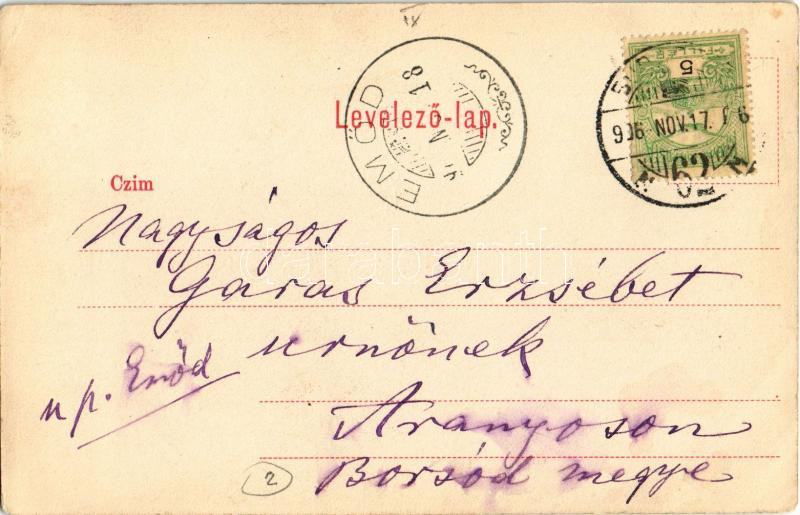 Levelező-lap.
EMŐD
18
FILLÉR
5
906 NOV.17.
62
Czim
Nagyságos
Garas Erzsébet
urnőnek
u p. Emőd
Aranyoson
Borsód megye
2
darabanth